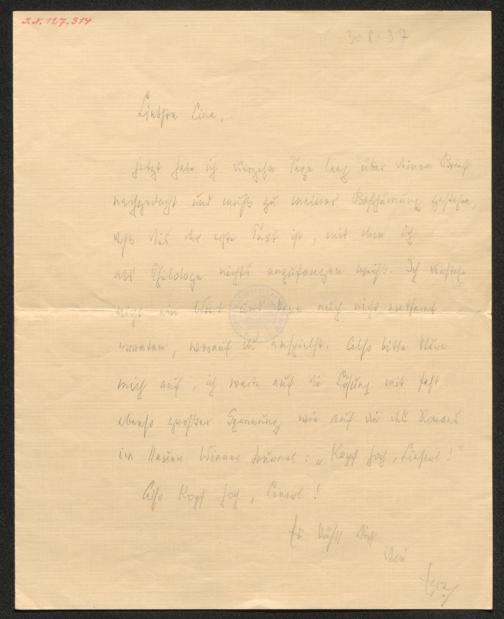 I.N. 127.314
30.8.37
Liebste Lina,
Jetzt habe ich vierzehn Tage lang über deinen Brief
nachgedacht und muß zu meiner Beschämung gestehen,
daß dies der erste Text ist, mit dem ich
als Philologe nichts anzufangen weiß. Ich verstehe
nicht ein Wort und kann auch nicht entfernt
erraten, worauf du anspielst. Also bitte kläre
mich auf, ich warte auf die Lösung mit fast
ebenso großer Spannung wie auf die des Romans
im Neuen Wiener Journal: „Kopf hoch, Liesel!"
Also Kopf hoch, !
Es küßt Dich
Dein